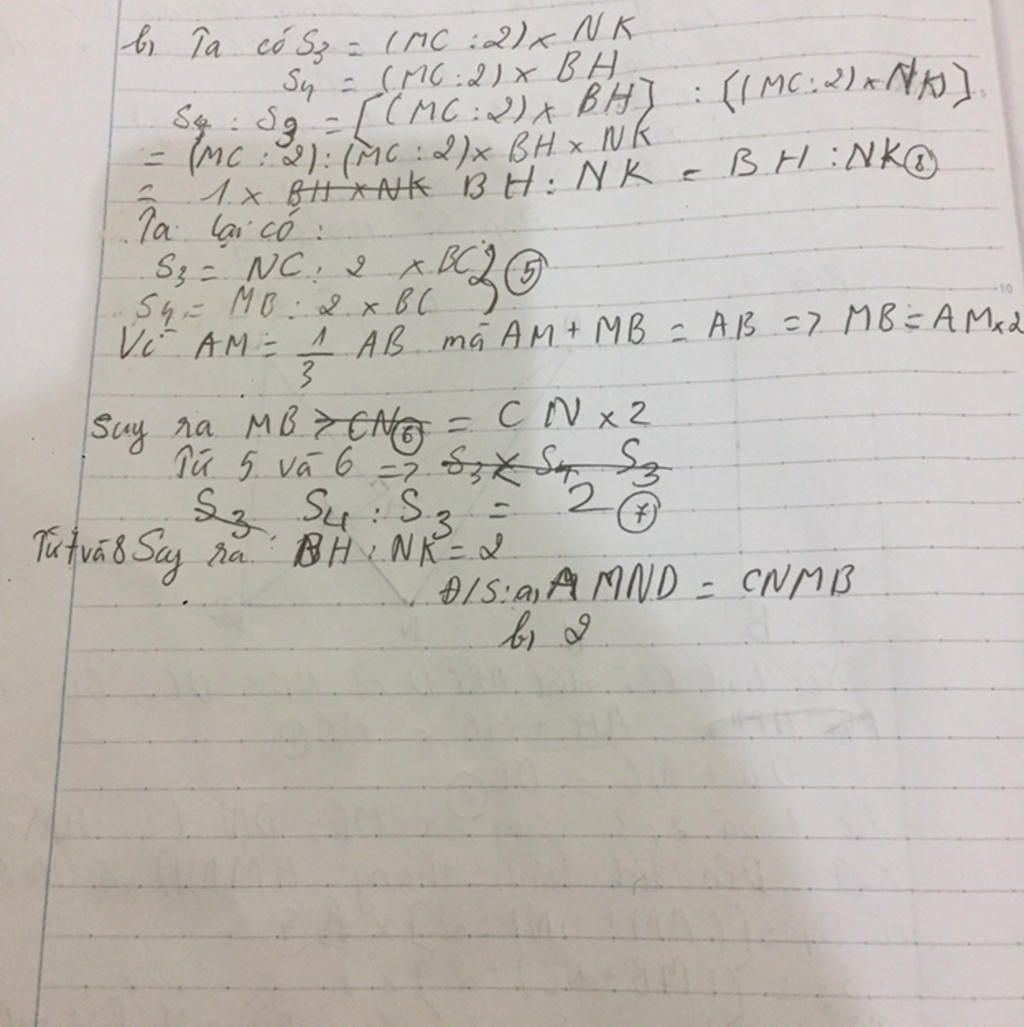 b, Ta có S3 = (MC : 2) x NK
S4 = (MC : 2) x BH
S4 : S3 = [(MC : 2) x BH] : [(MC : 2) x NK]
= (MC : 2) : (MC : 2) x BH x NK
= 1 x BH x NK BH : NK = BH : NK ⑧
Ta lại có :
S3 = NC : 2 x BC } ⑤
S4 = MB : 2 x BC
Vì AM = 1/3 AB mà AM + MB = AB => MB = AM x 2
Suy ra MB > CN ⑥ = CN x 2
Từ 5 và 6 => S3 x S4 S3
S3 S4 : S3 = 2 ⑦
Từ 7 và 8 Suy ra : BH : NK = 2
Đ/S: a, AMND = CNMB
b, 2